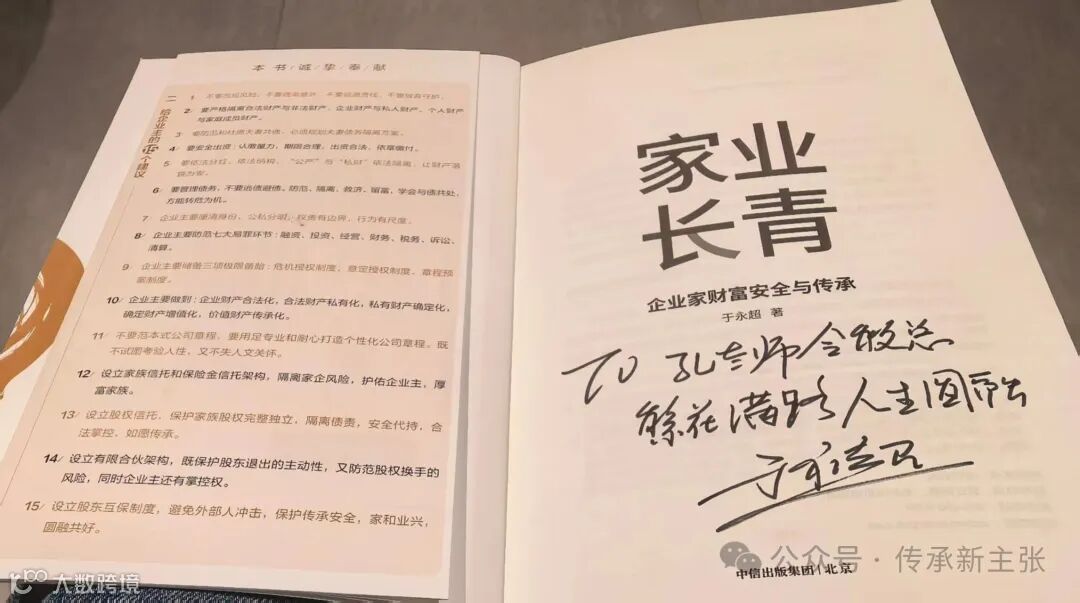 本书/诚/挚/奉/献
二
给企业主的15个建议
1 不要忽视风险，不要
2/ 要严格隔离合法财产与非法财产、企业财产与私人财产、个人财产
与家庭成员财产。
3 要防范和杜绝夫妻共债，必须规划夫妻债务隔离方案。
4/ 要安全出资：认缴量力，期限合理，出资合法，依章缴付。
5 要依法分红，依法纳税，“公产”与“私财”依法隔离，让财产落
袋为安。
6/ 要管理债务，不要远债避债。防范、隔离、救济、留富，学会与债共处，
方能转危为机。
7/ 企业主要厘清身份、公私分明，权责有边界，行为有尺度。
8/ 企业主要防范七大局罪环节：融资、投资、经营、财务、税务、诉讼、
清算。
9/ 企业主要储备三项极限备胎：危机授权制度、意定授权制度、章程预
案制度。
10/ 企业主要做到：企业财产合法化，合法财产私有化，私有财产确定化，
确定财产增值化，价值财产传承化。
11/ 不要范本式公司章程，要用足专业和耐心打造个性化公司章程，既
不试图考验人性，又不失人文关怀。
12/ 设立家族信托和保险金信托架构，隔离家企风险，护佑企业主，厚
富家族。
13/ 设立股权信托，保护家族股权完整独立，隔离债责，安全代持，合
法掌控，如愿传承。
14/ 设立有限合伙架构，既保护股东退出的主动性，又防范股权换手的
风险，同时企业主还有掌控权。
15/ 设立股东互保制度，避免外部人冲击，保护传承安全，家和业兴，
圆融共好。
家业
长青
企业家财富安全与传承
于永超 著
TO 孔老师令毅总
繁花满路人生圆融
于永超
中信出版集团|北京
公众号·传承新主张
大数跨境